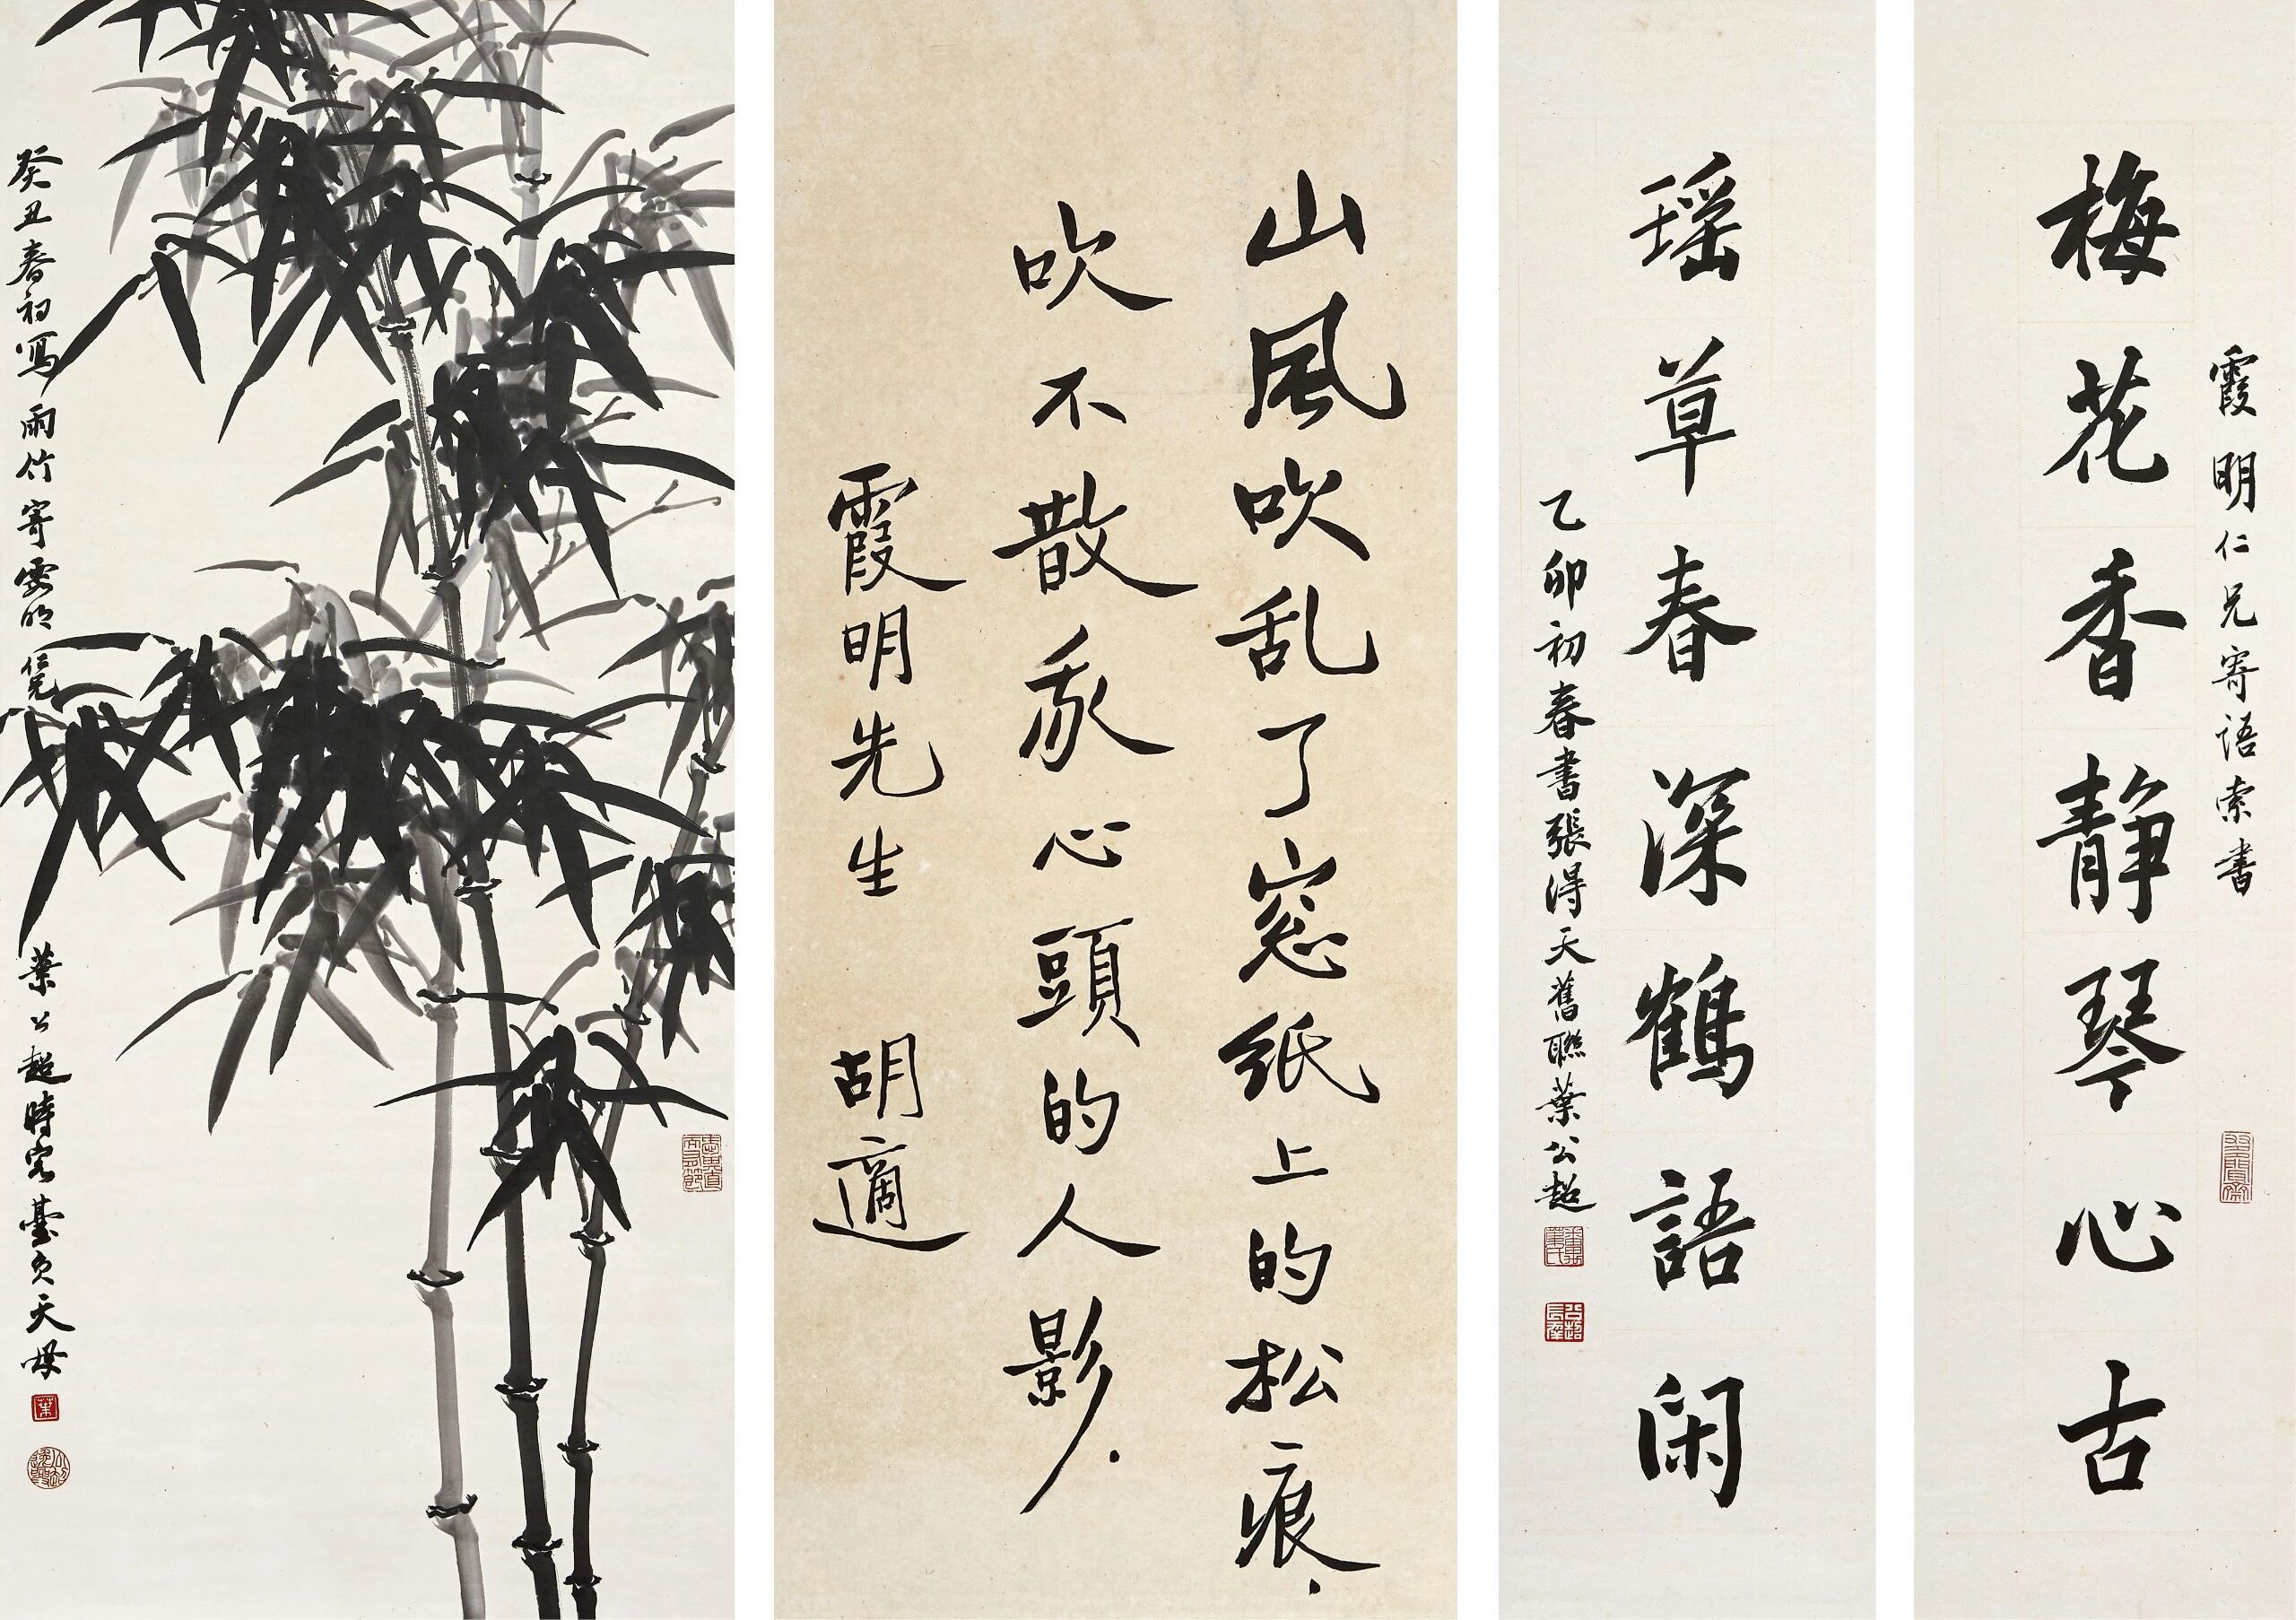 霞明仁兄寄語索書
梅花香靜琴心古
瑶草春深鶴語閑
乙卯初春書張得天舊聯葉公超
山風吹乱了窓紙上的松痕.
吹不散我心頭的人影.
霞明先生
胡適
癸丑春初寫雨竹寄霞明仁兄
葉公超時客臺負天母